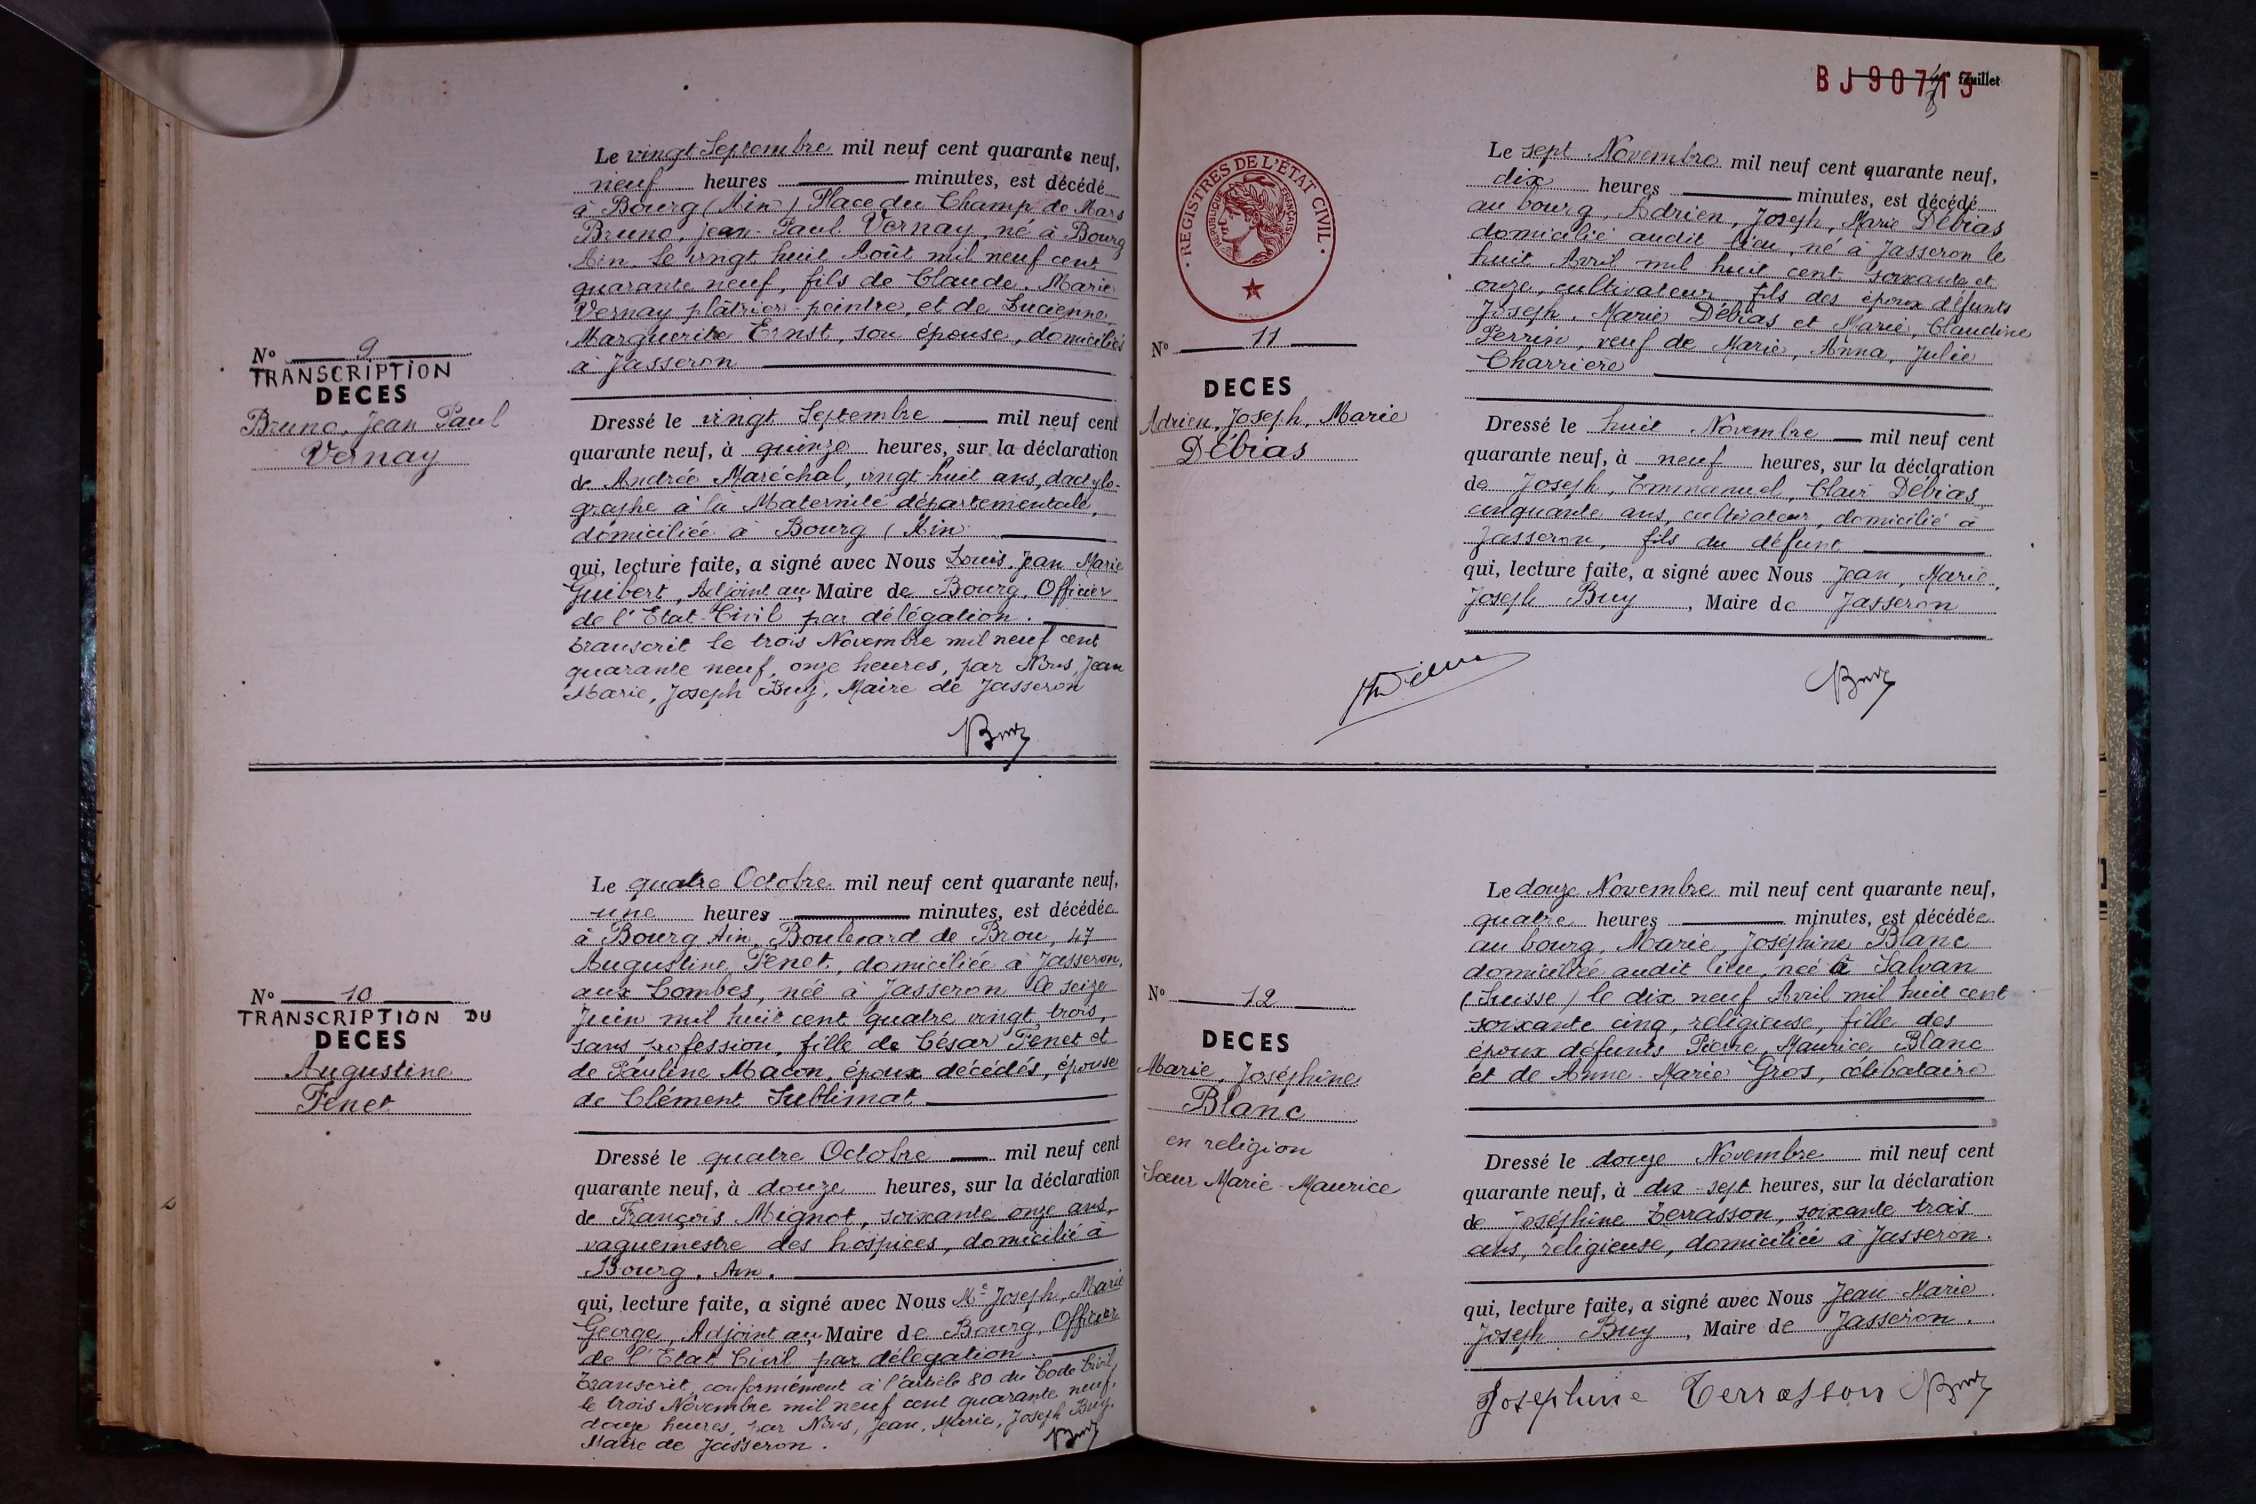 Le vingt Septembre mil neuf cent quarante neuf,
neuf heures minutes, est décédé
à Bourg (Ain) Place du Champ de Mars
Bruno, Jean-Paul Vernay, né à Bourg
Ain, le vingt huit Août mil neuf cent
quarante neuf, fils de Claude, Marie
Vernay plâtrier-peintre, et de Lucienne,
Marguerite Ernst, son épouse, domiciliés
à Jasseron
N° 9
TRANSCRIPTION
DECES
Bruno, Jean Paul
Vernay
Dressé le vingt Septembre mil neuf cent
quarante neuf, à quinze heures, sur la déclaration
de Andrée Maréchal, vingt huit ans, dactylo-
graphe à la Maternité départementale,
domiciliée à Bourg (Ain
qui, lecture faite, a signé avec Nous Louis, Jean Marie
Guibert, Adjoint au Maire de Bourg, Officier
de l'Etat-Civil par délégation.
transcrit le trois Novembre mil neuf cent
quarante neuf, onze heures, par Nous, Jean
Marie, Joseph Buy, Maire de Jasseron
Buy
Le quatre Octobre mil neuf cent quarante neuf,
une heures minutes, est décédée
à Bourg Ain, Boulevard de Brou, 47
Augustine Fenet, domiciliée à Jasseron,
aux Combes, née à Jasseron le seize
Juin mil huit cent quatre vingt trois,
sans profession, fille de César Fenet et
de Pauline Macon, époux décédés, épouse
de Clément Sublimat
N° 10
TRANSCRIPTION DU
DECES
Augustine
Fenet
Dressé le quatre Octobre mil neuf cent
quarante neuf, à douze heures, sur la déclaration
de François Mignot, soixante onze ans,
vaguemestre des hospices, domicilié à
Bourg. Ain.
qui, lecture faite, a signé avec Nous Me Joseph, Marie
George, Adjoint au Maire de Bourg, Officier
de l'Etat Civil par délégation.
Transcrit, conformément à l'article 80 du Code Civil,
le trois Novembre mil neuf cent quarante neuf,
douze heures, par Nous, Jean, Marie, Joseph Buy,
Maire de Jasseron.
Buy
BJ90713 feuillet
REGISTRES DE L'ÉTAT CIVIL
RÉPUBLIQUE FRANÇAISE
Le sept Novembre mil neuf cent quarante neuf,
dix heures minutes, est décédé
au bourg, Adrien, Joseph, Marie Débias
domicilié audit lieu, né à Jasseron le
huit Avril mil huit cent soixante et
onze, cultivateur fils des époux défunts
Joseph, Marie Débias et Marie, Claudine
Perrin, veuf de Marie, Anna, Julie
Charriere
N° 11
DECES
Adrien, Joseph, Marie
Débias
Dressé le huit Novembre mil neuf cent
quarante neuf, à neuf heures, sur la déclaration
de Joseph, Emmanuel, Clair Débias,
cinquante ans, cultivateur, domicilié à
Jasseron, fils du défunt
qui, lecture faite, a signé avec Nous Jean, Marie,
Joseph Buy, Maire de Jasseron
Buy
Le douze Novembre mil neuf cent quarante neuf,
quatre heures minutes, est décédée
au bourg, Marie, Joséphine Blanc
domiciliée audit lieu, née à Salvan
(Suisse) le dix neuf Avril mil huit cent
soixante cinq, religieuse, fille des
époux défunts Pierre, Maurice Blanc
et de Anne-Marie Gros, célibataire
N° 12
DECES
Marie, Joséphine
Blanc
en religion
Sœur Marie-Maurice
Dressé le douze Novembre mil neuf cent
quarante neuf, à dix-sept heures, sur la déclaration
de Joséphine Terrasson, soixante trois
ans, religieuse, domiciliée à Jasseron.
qui, lecture faite, a signé avec Nous Jean-Marie
Joseph Buy, Maire de Jasseron.
Josephine Terrasson Buy